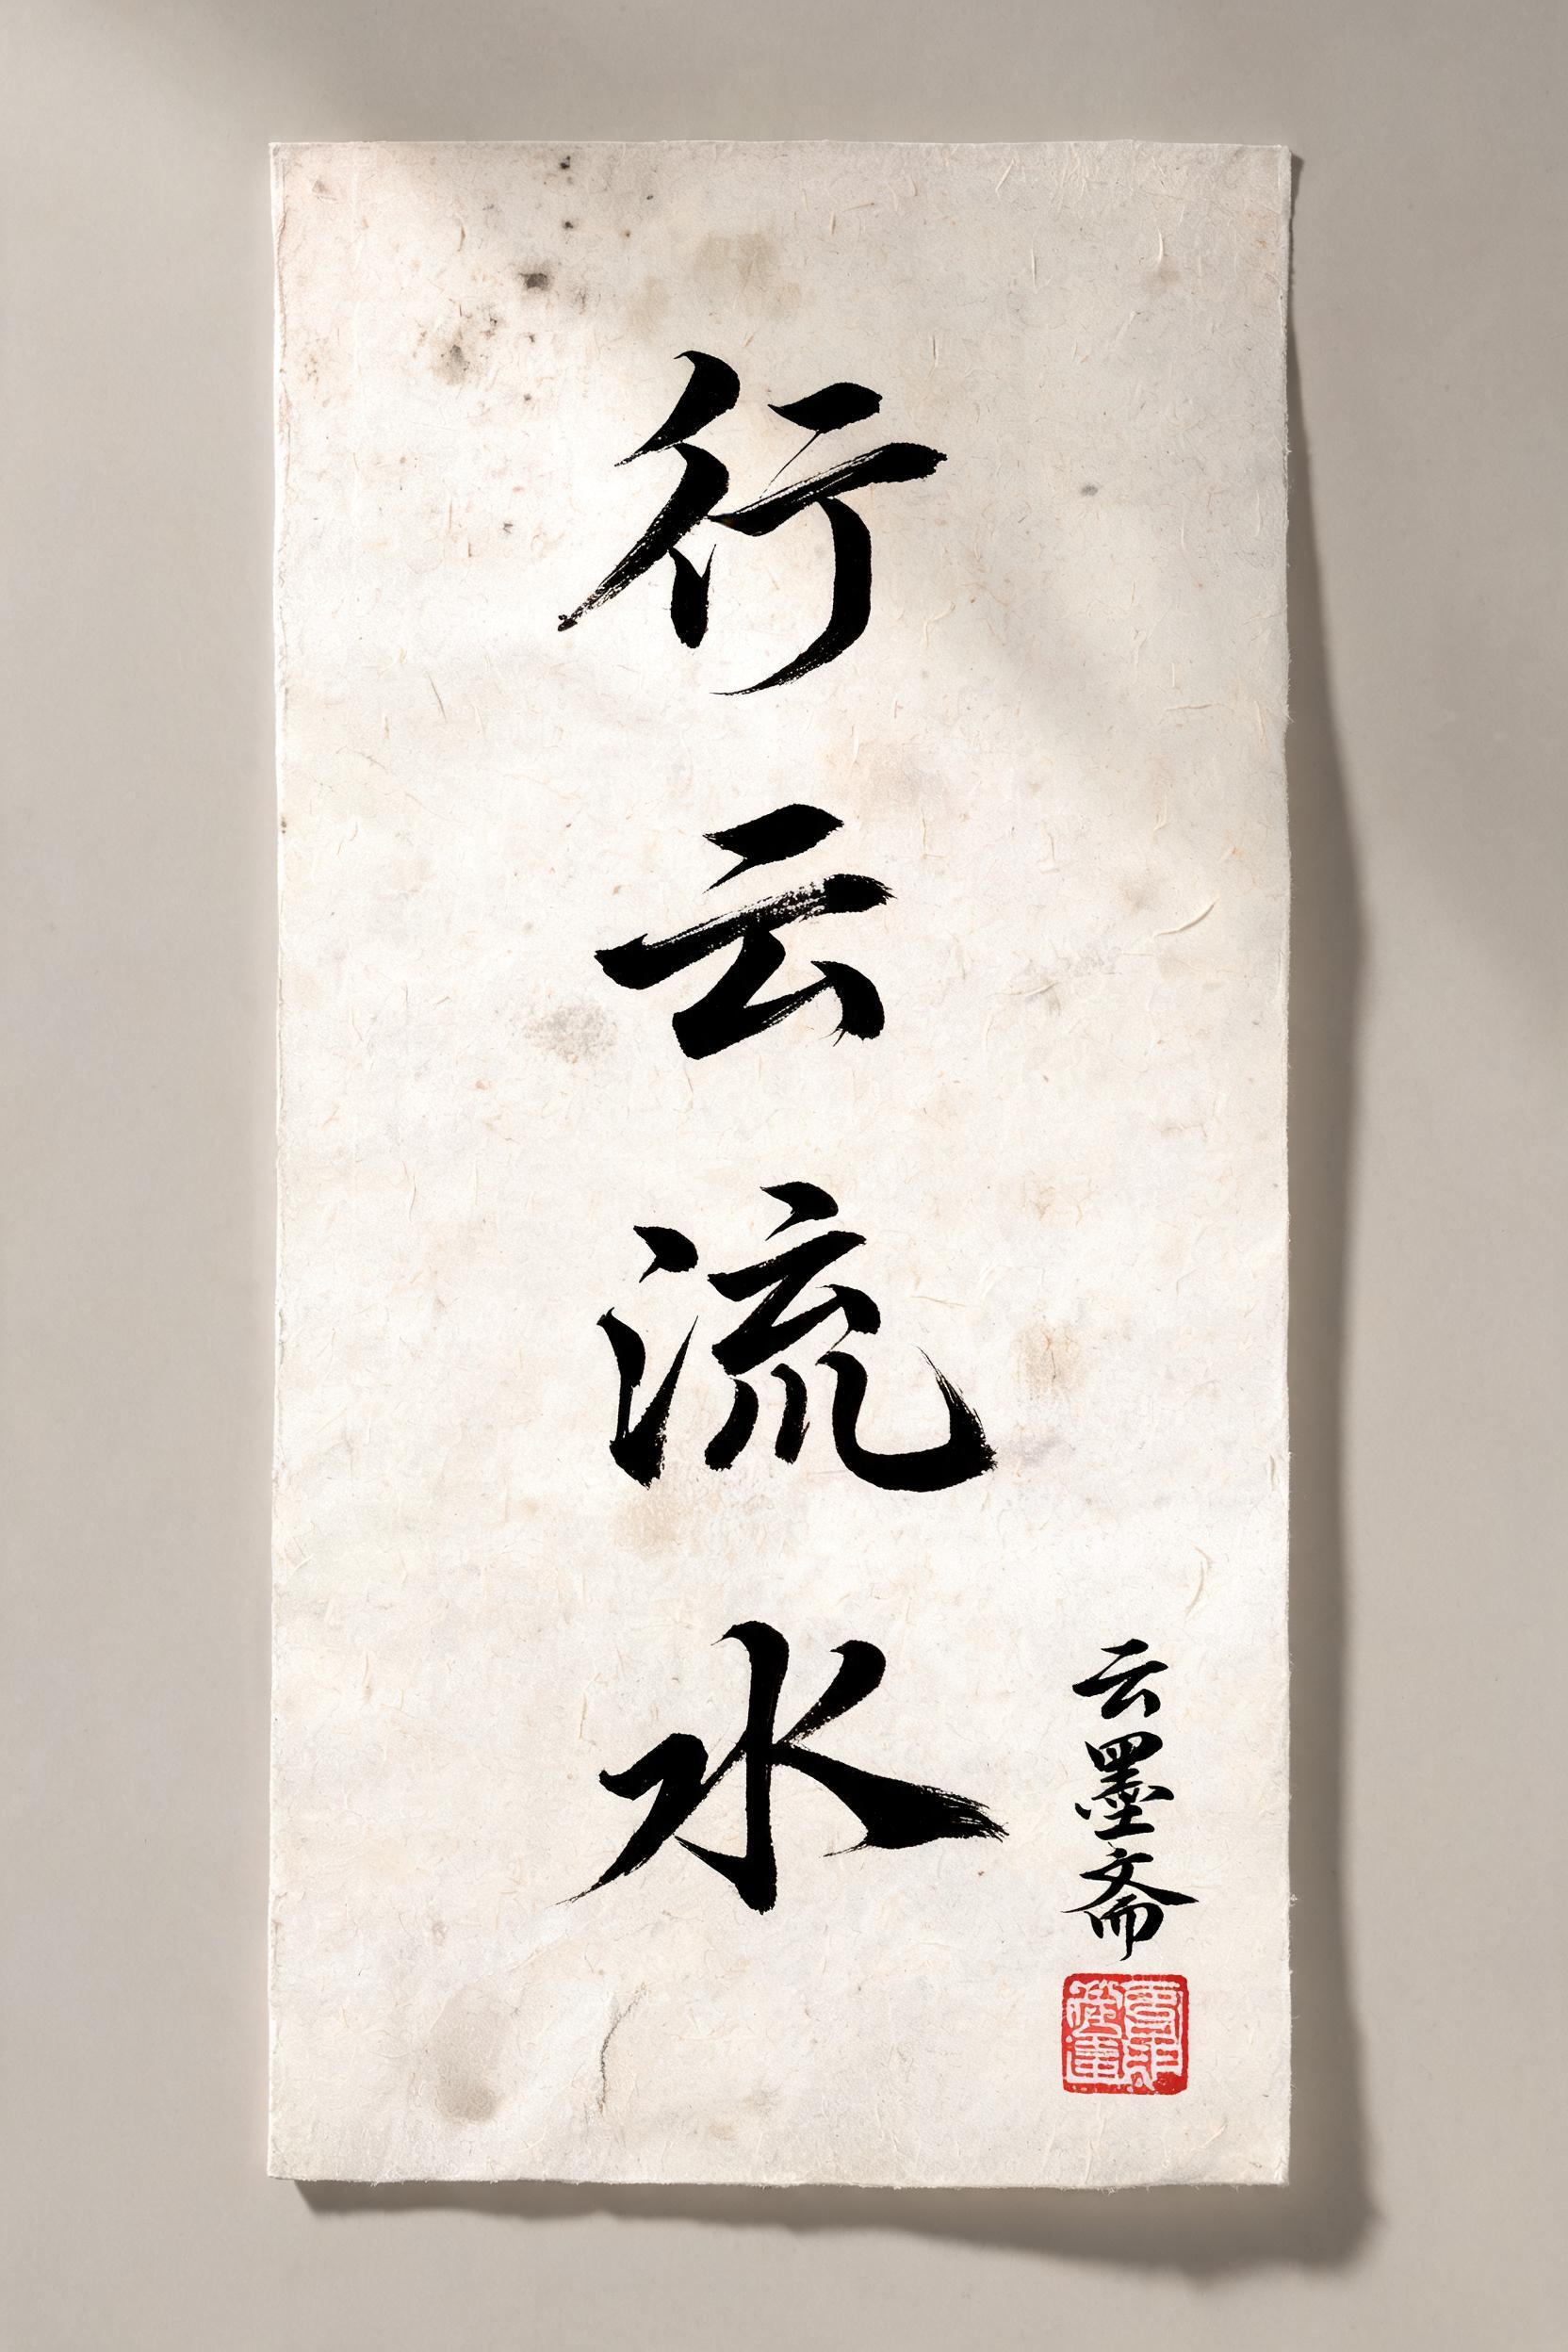 行云流水
云墨斋